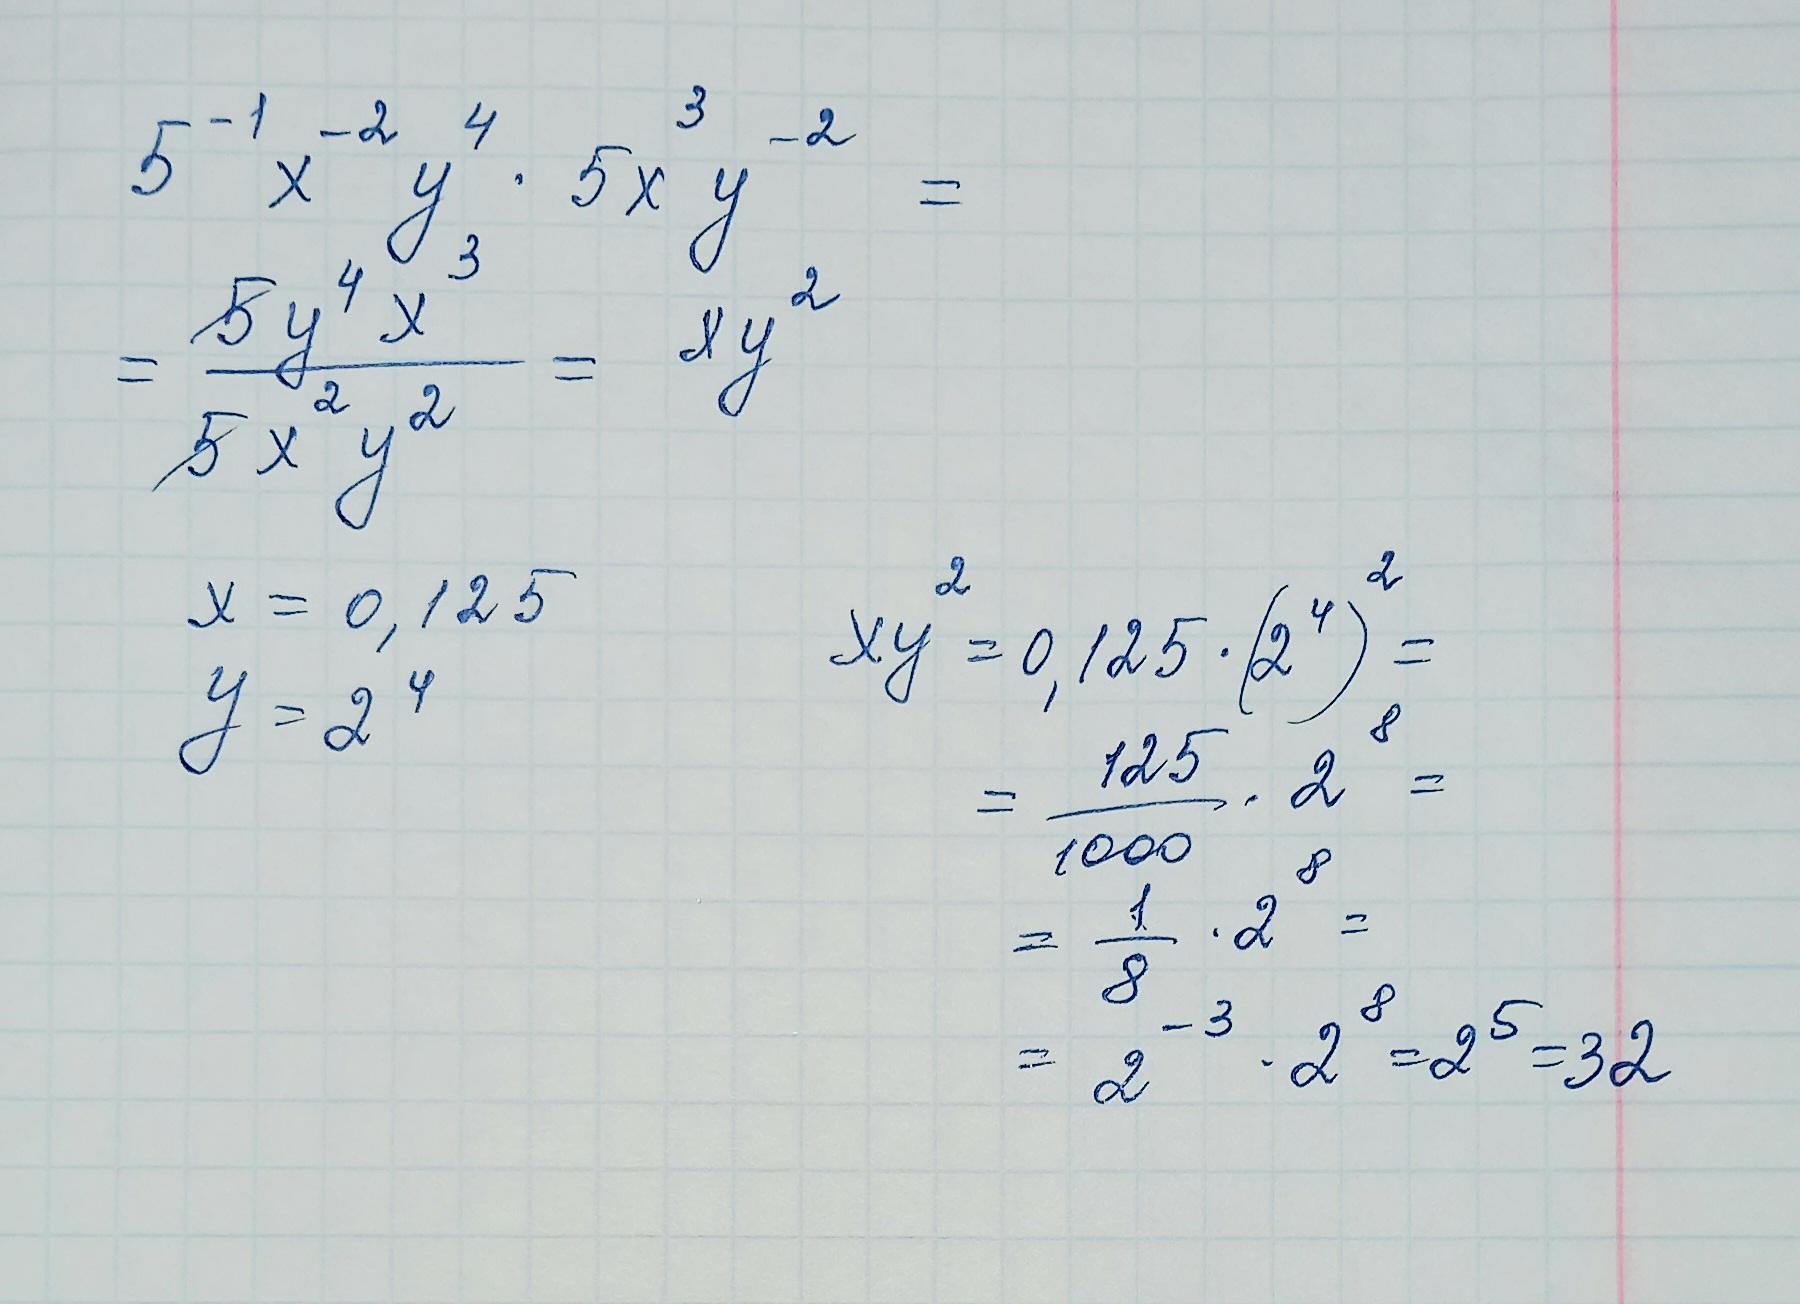 5⁻¹x⁻²y⁴ · 5x³y⁻² =
= 5y⁴x³ / 5x²y² = xy²
x = 0,125
y = 2⁴
xy² = 0,125 · (2⁴)² =
= 125/1000 · 2⁸ =
= 1/8 · 2⁸ =
= 2⁻³ · 2⁸ = 2⁵ = 32